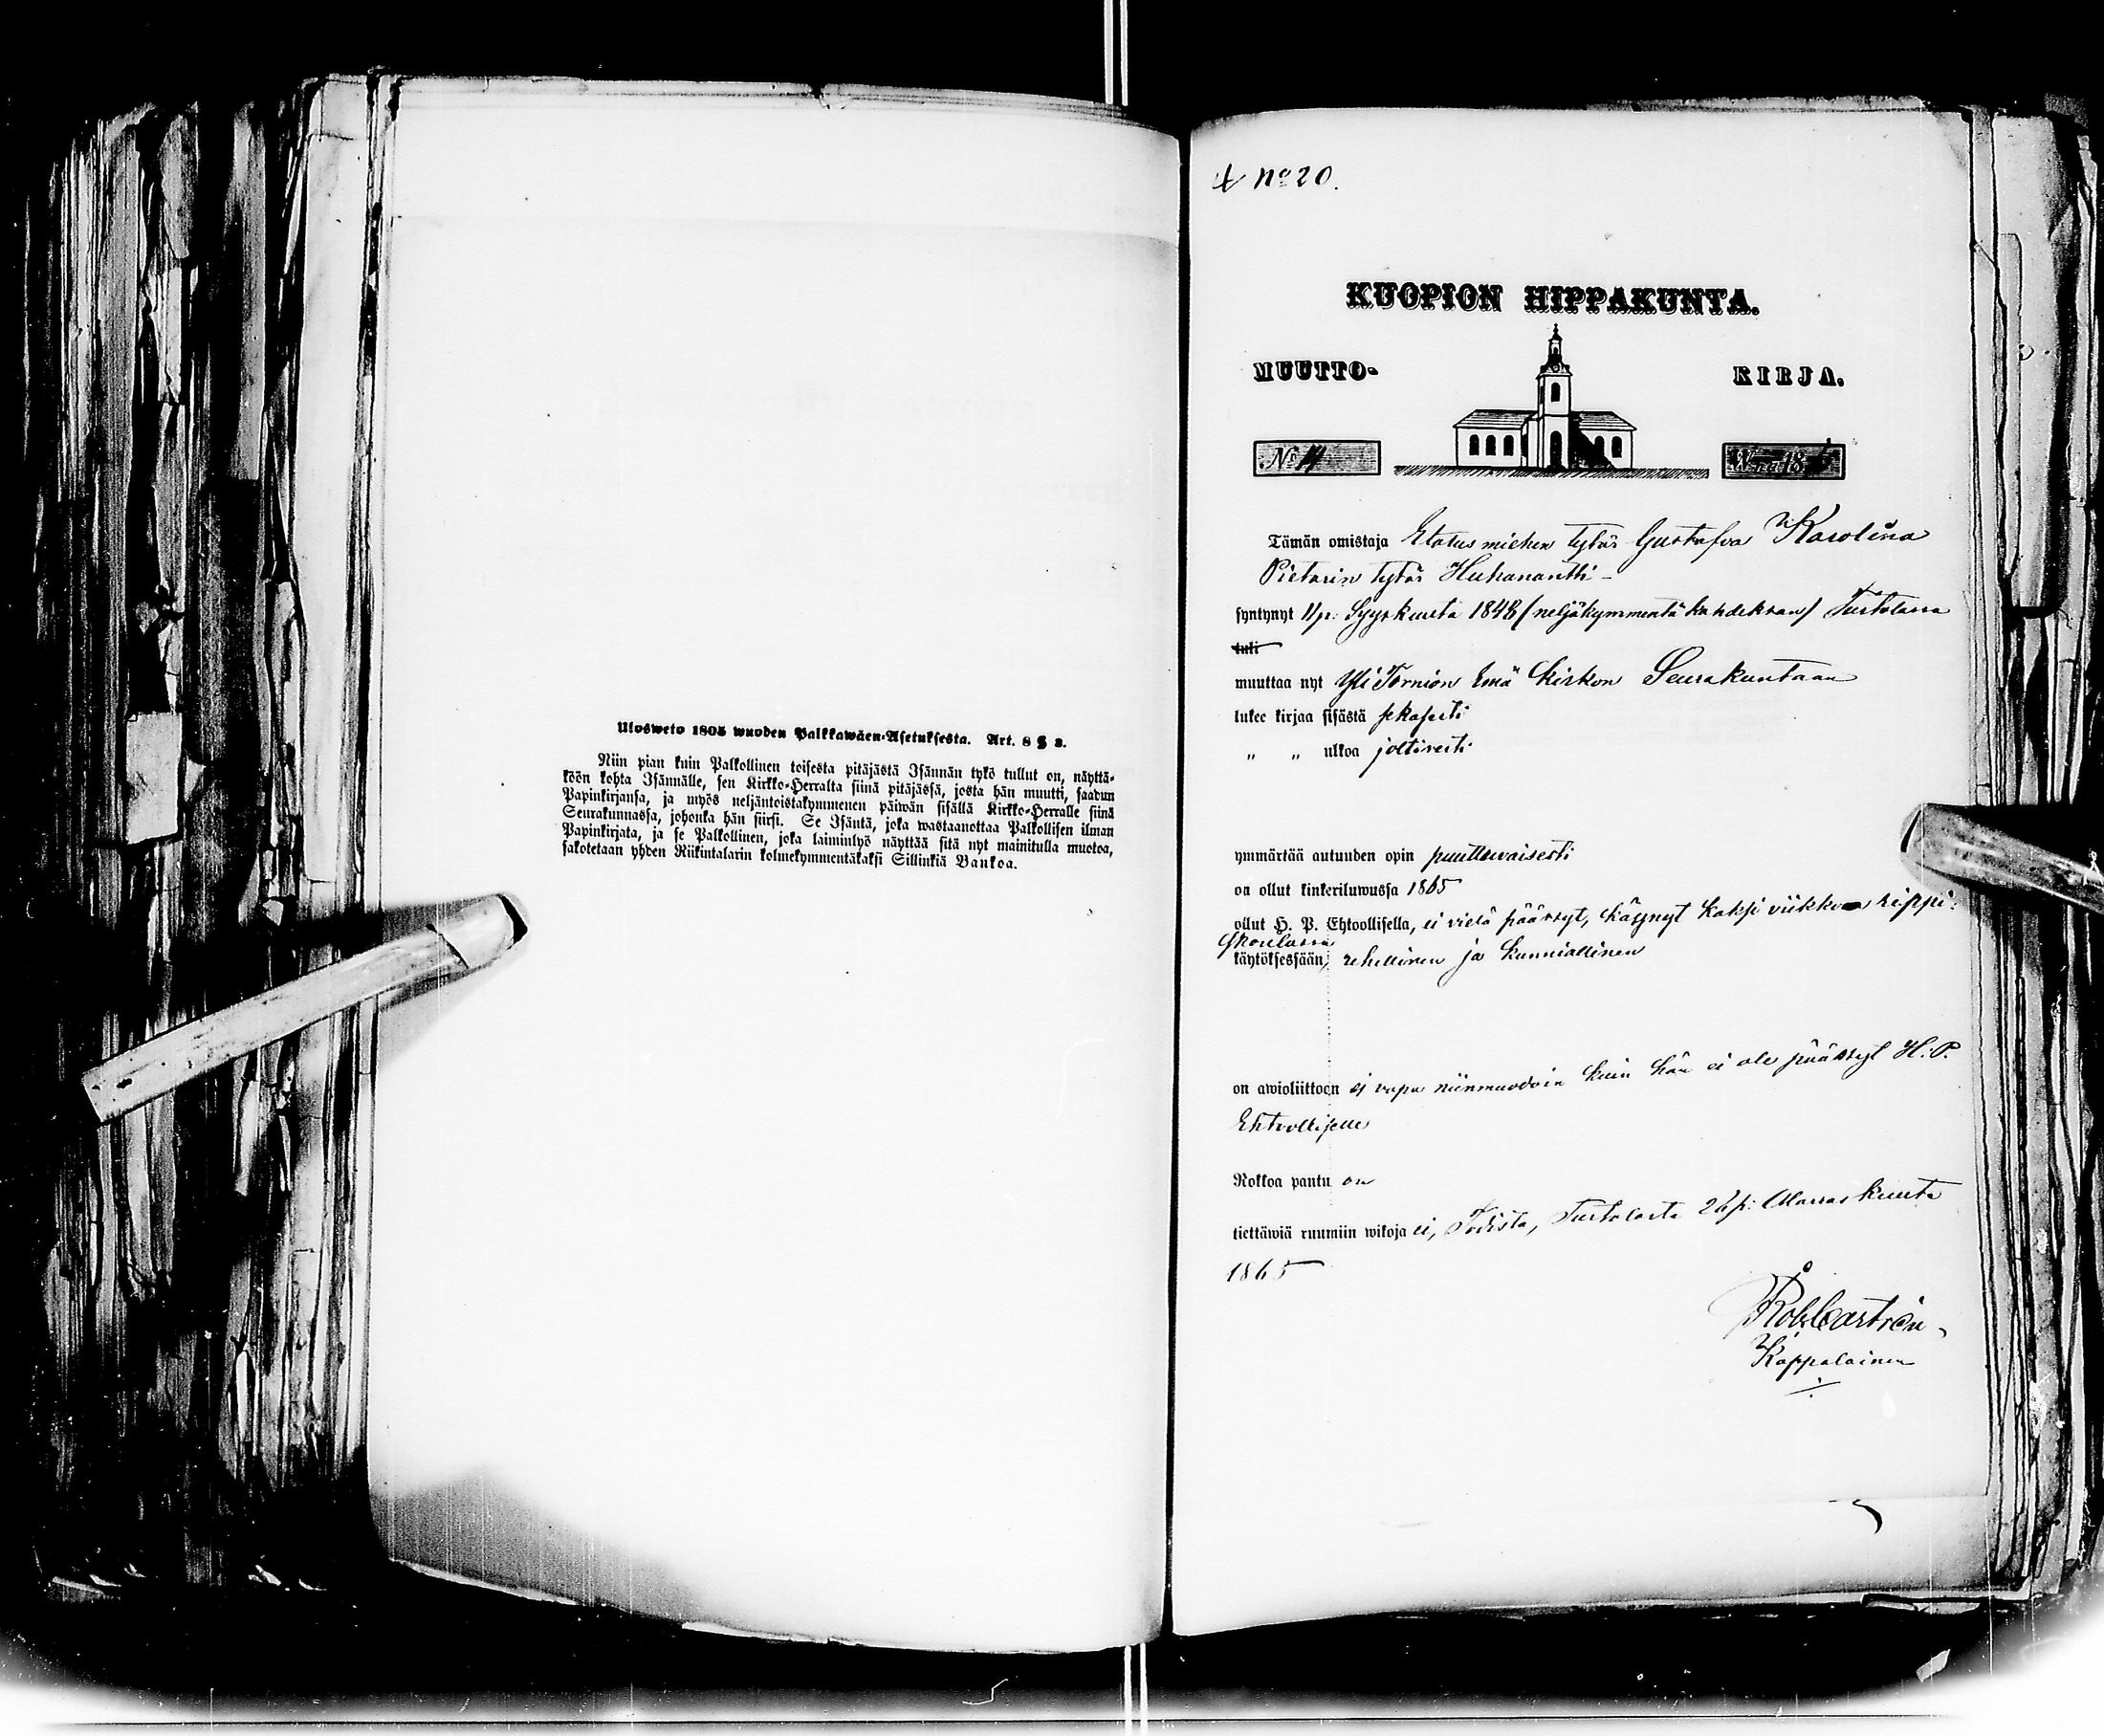 Ulosweto 1805 wuoden Palkkawäen-Asetuksesta. Art. 8 § 3.
Niin pian kuin Palkollinen toisesta pitäjästä Isännän tykö tullut on, näyttä-
köön kohta Isännälle, sen Kirkko-Herralta siinä pitäjässä, josta hän muutti, saadun
Papinkirjansa, ja myös neljäntoistakymmenen päiwän sisällä Kirkko-Herralle siinä
Seurakunnassa, johonka hän siirsi. Se Isäntä, joka wastaanottaa Palkollisen ilman
Papinkirjata, ja se Palkollinen, joka laiminlyö näyttää sitä nyt mainitulla muotoa,
sakotetaan yhden Riikintalarin kolmekymmentäkaksi Sillinkiä Bankoa.
No 20.
KUOPION HIPPAKUNTA.
MUUTTO- KIRJA.
No 14 W:na 18
Tämän omistaja Elatusmiehen tytär Gustafva Karolina
Pietarin tytär Huhanantti
syntynyt 11 p: Syyskuuta 1848 (neljäkymmentä kahdeksan) Turtolassa
tuli
muuttaa nyt Yli Tornion Emä Kirkon Seurakuntaan
lukee kirjaa sisästä sekasesti
„ „ ulkoa joltisesti
ymmärtää autuuden opin puuttuvaisesti
on ollut kinkeriluwussa 1865
ollut H. P. Ehtoollisella, ei vielä päässyt, käynyt kaksi viikkoa rippi-
skoulassa
käytöksessään, rehellinen ja kunniallinen
on awioliittoon ej vapa niinmuodoin kuin hän ei ole päässyt H. P.
Ehtoolliselle
Rokkoa pantu on
tiettäwiä ruumiin wikoja ei, Todista, Turtolasta 26 p: Marraskuuta
1865
Rob. Castrén
Kappalainen